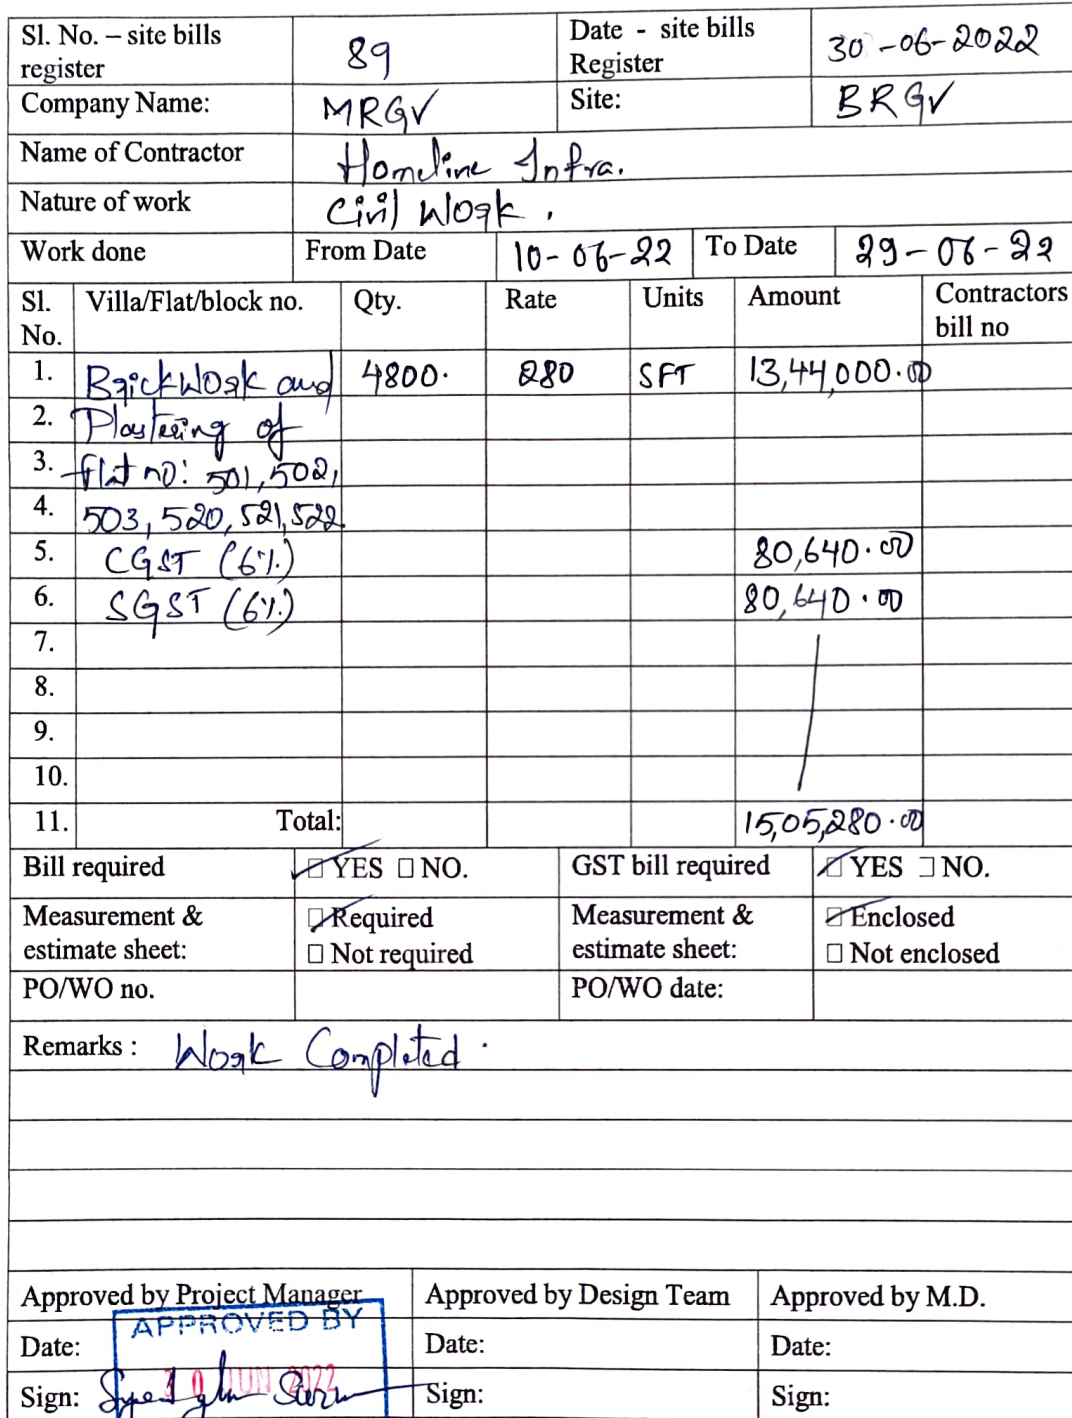 Sl. No. – site bills register 89 Date - site bills Register 30-06-2022
Company Name: MRGV Site: BRGV
Name of Contractor Homeline Infra.
Nature of work Civil Work.
Work done From Date 10-06-22 To Date 29-06-22
Sl. No. Villa/Flat/block no. Qty. Rate Units Amount Contractors bill no
1. Brickwork and 4800. 280 SFT 13,44,000.00
2. Plastering of
3. flat no: 501, 502,
4. 503, 520, 521, 522
5. CGST (6%) 80,640.00
6. SGST (6%) 80,640.00
7.
8.
9.
10.
11. Total: 15,05,280.00
Bill required ☑ YES ☐ NO. GST bill required ☑ YES ☐ NO.
Measurement & estimate sheet: ☑ Required ☐ Not required Measurement & estimate sheet: ☑ Enclosed ☐ Not enclosed
PO/WO no. PO/WO date:
Remarks : Work Completed.
Approved by Project Manager Approved by Design Team Approved by M.D.
APPROVED BY
Date: Date: Date:
30 JUN 2022
Sign: Sign: Sign: